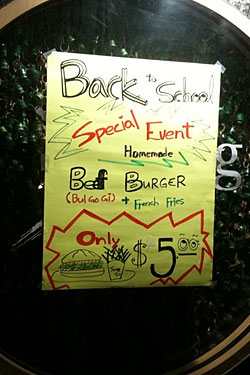 Back to School
Special Event
Homemade
Beef Burger
(Bul Go Gi) + French Fries
Only
$5.00
g